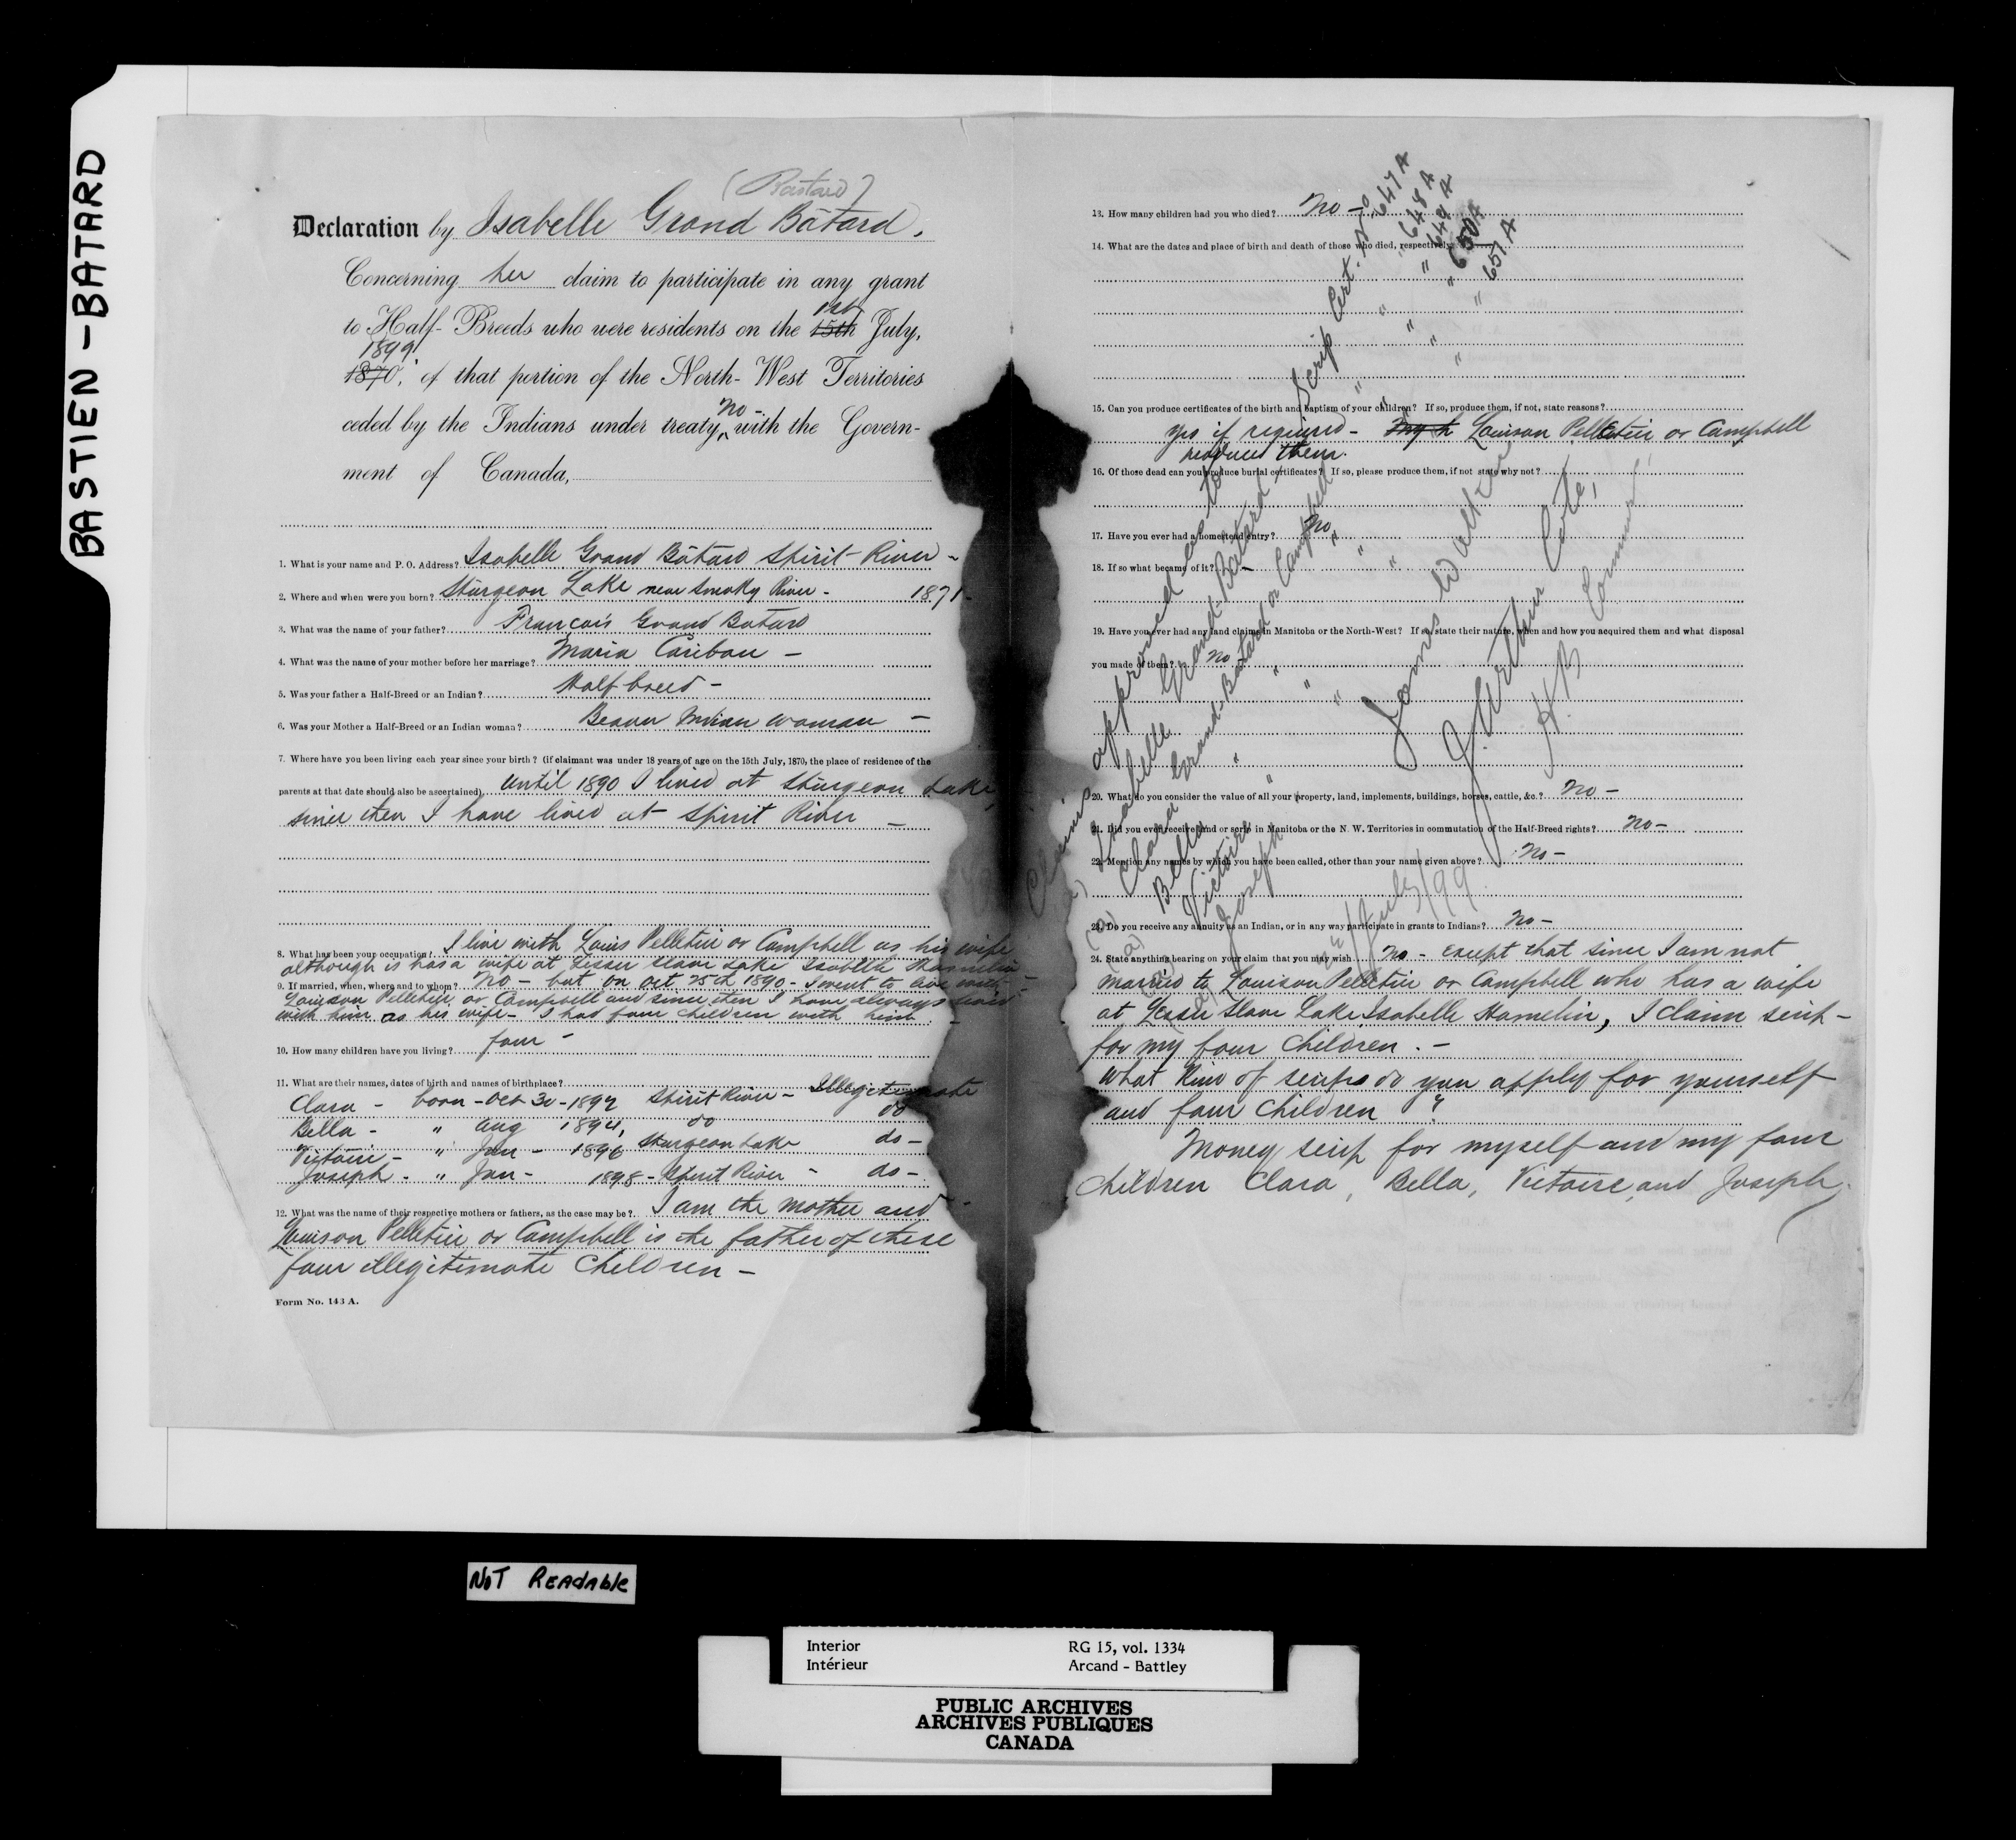 BASTIEN - BATARD
(Bastard)
Declaration by Isabelle Grand Bâtard.
Concerning her claim to participate in any grant
1st
to Half-Breeds who were residents on the 15th July,
1899
1870, of that portion of the North-West Territories
No -
ceded by the Indians under treaty, with the Govern-
ment of Canada,
1. What is your name and P. O. Address? Isabelle Grand Bâtard Spirit River -
2. Where and when were you born? Sturgeon Lake near Smoky River - 1871-
3. What was the name of your father? François Grand Batard
4. What was the name of your mother before her marriage? Maria Caribou -
5. Was your father a Half-Breed or an Indian? Half breed -
6. Was your Mother a Half-Breed or an Indian woman? Beaver Indian woman -
7. Where have you been living each year since your birth? (if claimant was under 18 years of age on the 15th July, 1870, the place of residence of the
parents at that date should also be ascertained). Until 1890 I lived at Sturgeon Lake,
since then I have lived at Spirit River -
8. What has been your occupation? I live with Louis Pelletier or Campbell as his wife
although is has a wife at Lesser Slave Lake Isabella Hamelin
9. If married, when, where and to whom? No - but on Oct 25th 1890 - I went to live with
Louison Pelletier or Campbell and since then I have always lived
with him as his wife - I had four children with him. -
10. How many children have you living? four -
11. What are their names, dates of birth and names of birthplace?
Clara - born - Oct 30 - 1892 Spirit River - Illegitimate
Bella - " Aug 1894, do do
Victoire - " Jan - 1896 Sturgeon Lake do -
Joseph - " Jan - 1898 - Spirit River - do -
12. What was the name of their respective mothers or fathers, as the case may be? I am the mother and
Louison Pelletier or Campbell is the father of these
four illegitimate children -
Form No. 143 A.
13. How many children had you who died? No -
14. What are the dates and place of birth and death of those who died, respectively?
15. Can you produce certificates of the birth and baptism of your children? If so, produce them, if not, state reasons?
yes if required - My h Louison Pelletier or Campbell
produced them.
16. Of those dead can you produce burial certificates? If so, please produce them, if not state why not?
17. Have you ever had a homestead entry? No
18. If so what became of it? -
19. Have you ever had any land claims in Manitoba or the North-West? If so, state their nature, when and how you acquired them and what disposal
you made of them? No
20. What do you consider the value of all your property, land, implements, buildings, horses, cattle, &c.? No -
21. Did you ever receive land or scrip in Manitoba or the N. W. Territories in commutation of the Half-Breed rights? No -
22. Mention any names by which you have been called, other than your name given above? No -
23. Do you receive any annuity as an Indian, or in any way participate in grants to Indians? No -
24. State anything bearing on your claim that you may wish. No - Except that since I am not
married to Louison Pelletier or Campbell who has a wife
at Lesser Slave Lake, Isabelle Hamelin, I claim scrip -
for my four children. -
What kind of scrips do you apply for yourself
and four children ?
Money scrip for myself and my four
children Clara, Bella, Victoire, and Joseph.
Claims approved as to Scrip Cert. No 647 A
Isabelle Grand-Batard " 648 A
Clara Grand-Batard or Campbell " " 649 A
Bella " " " " 650 A
Victoire " " " " 651 A
Joseph " " "
James Walker
J. Arthur Coté,
H. B. Commrs.
July/99
NOT Readable
Interior RG 15, vol. 1334
Intérieur Arcand - Battley
PUBLIC ARCHIVES
ARCHIVES PUBLIQUES
CANADA